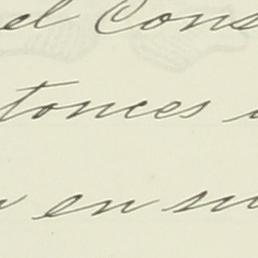 el Cons
tonces
en su